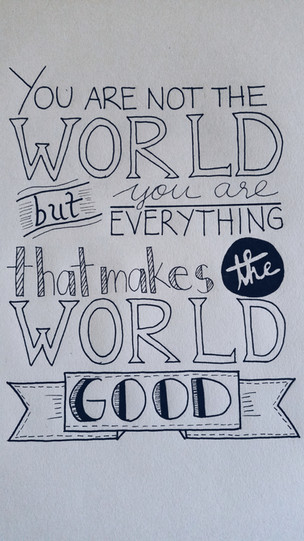 YOU ARE NOT THE
WORLD
but you are
EVERYTHING
that makes the
WORLD
GOOD